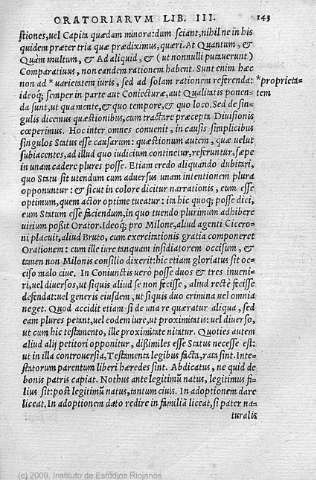 ORATORIARVM LIB. III. 143
stiones, uel Capita quædam minora: dum sciant, nihil ne in his
quidem præter tria quæ prædiximus, quæri. At Quantum, &
Quàm multum, & Ad aliquid, & (ut nonnulli putauerunt)
Comparatiuus, non eandem rationem habent. Sunt enim hæc
non ad * uarietatem iuris, sed ad solam rationem referenda: *proprieta=
ideoq; semper in parte aut Coniecturæ, aut Qualitatis ponen= tem
da sunt, ut qua mente, & quo tempore, & quo loco. Sed de sin=
gulis dicemus quæstionibus, cum tractare præcepta Diuisionis
cœperimus. Hoc inter omnes conuenit, in causis simplicibus
singulos Status esse causarum: quæstionum autem, quæ uelut
subiacentes, ad illud quo iudicium continetur, referuntur, sæpe
in unam cadere plures posse. Etiam credo aliquando dubitari,
quo Statu sit utendum cum aduersus unam intentionem plura
opponuntur: & sicut in colore dicitur narrationis, eum esse
optimum, quem actor optime tueatur: in hic quoq; posse dici,
eum Statum esse faciendum, in quo tuendo plurimum adhibere
uirium possit Orator. Ideoq; pro Milone, aliud agenti Cicero=
ni placuit, aliud Bruto, cum exercitationis gratia componeret
Orationem: cum ille iure tanquam insidiatorem occisum, &
tamen non Milonis consilio dixerit: hic etiam gloriatus sit oc=
ciso malo ciue. In Coniunctis uerò posse duos & tres inueni=
ri, uel diuersos, ut siquis aliud se non fecisse, aliud rectè fecisse
defendat: uel generis eiusdem, ut siquis duo crimina uel omnia
neget. Quod accidit etiam si de una re quæratur aliqua, sed
eam plures petant, uel eodem iure, ut proximitatis: uel diuerso,
ut cum hic testamento, ille proximitate nitatur. Quoties autem
aliud alij petitori opponitur, dissimiles esse Status necesse est:
ut in illa controuersia, Testamenta legibus facta, rata sint. Inte=
statorum parentum liberi hæredes sint. Abdicatus, ne quid de
bonis patris capiat. Nothus ante legitimũ natus, legitimus fi=
lius sit: post legitimũ natus, tantum ciuis. In adoptionem dare
liceat. In adoptionem dato redire in familiã liceat, si pater na=
turalis
(c) 2009, Instituto de Estudios Riojanos